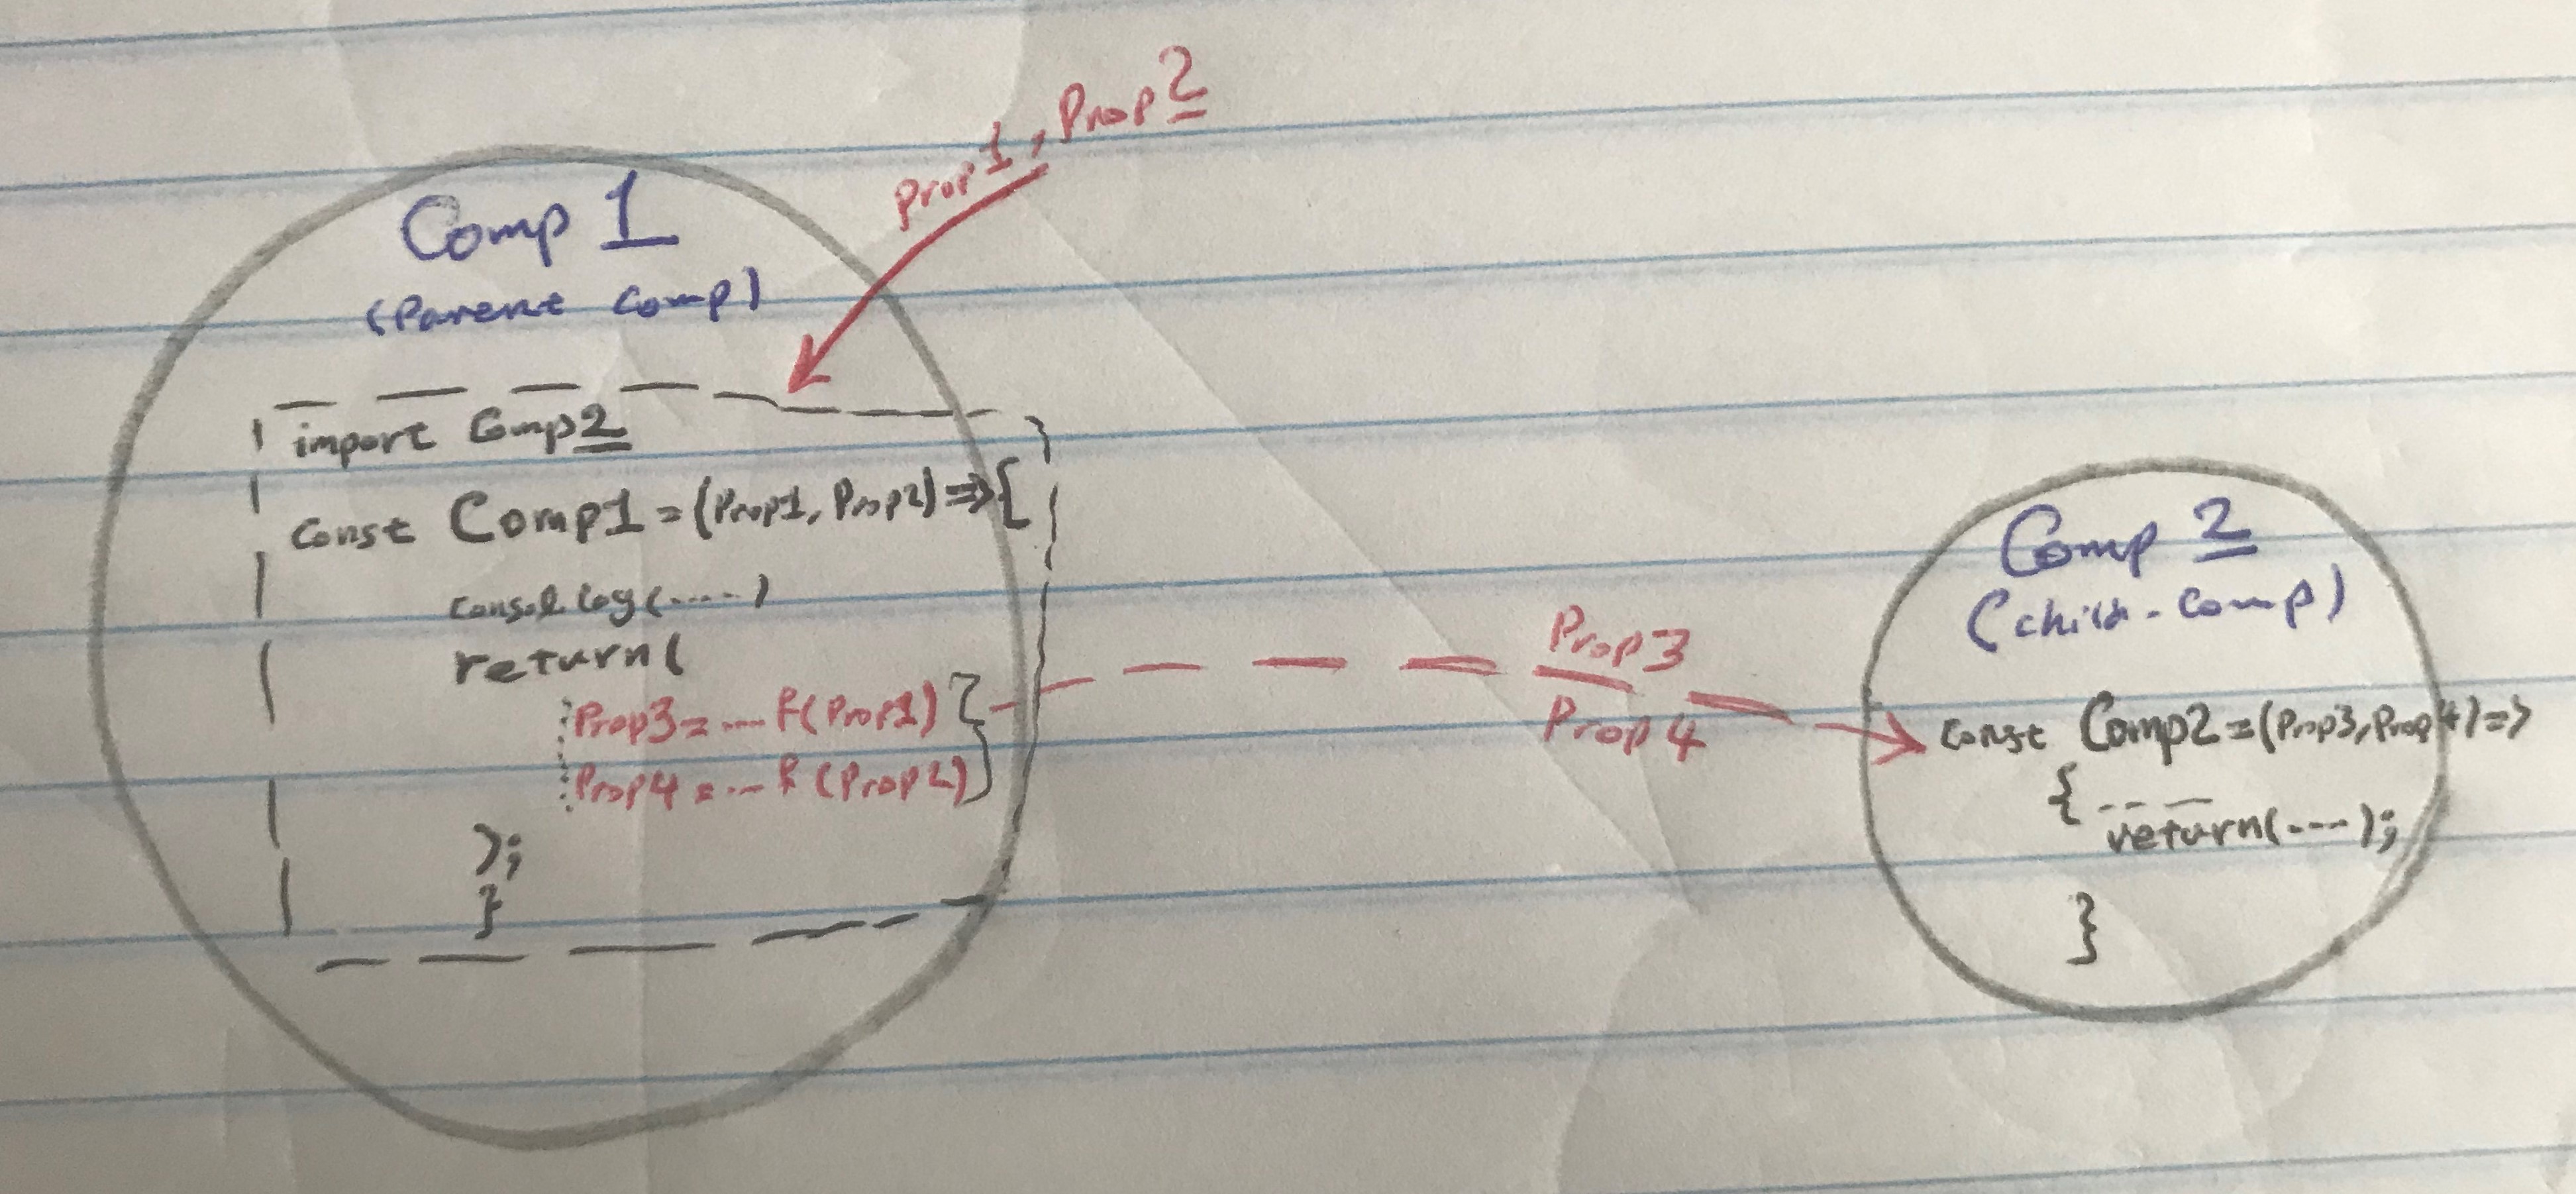 Prop1, Prop2
Comp 1
(Parent comp)
import Comp2
const Comp1 = (Prop1, Prop2) => {
consol log(.....)
return(
Prop3 = .... F(Prop1) }
Prop4 = ... F(Prop2)
);
}
Prop3
Prop4
Comp 2
(child-comp)
const Comp2 = (Prop3, Prop4) =>
{ -- --
return(----);
}